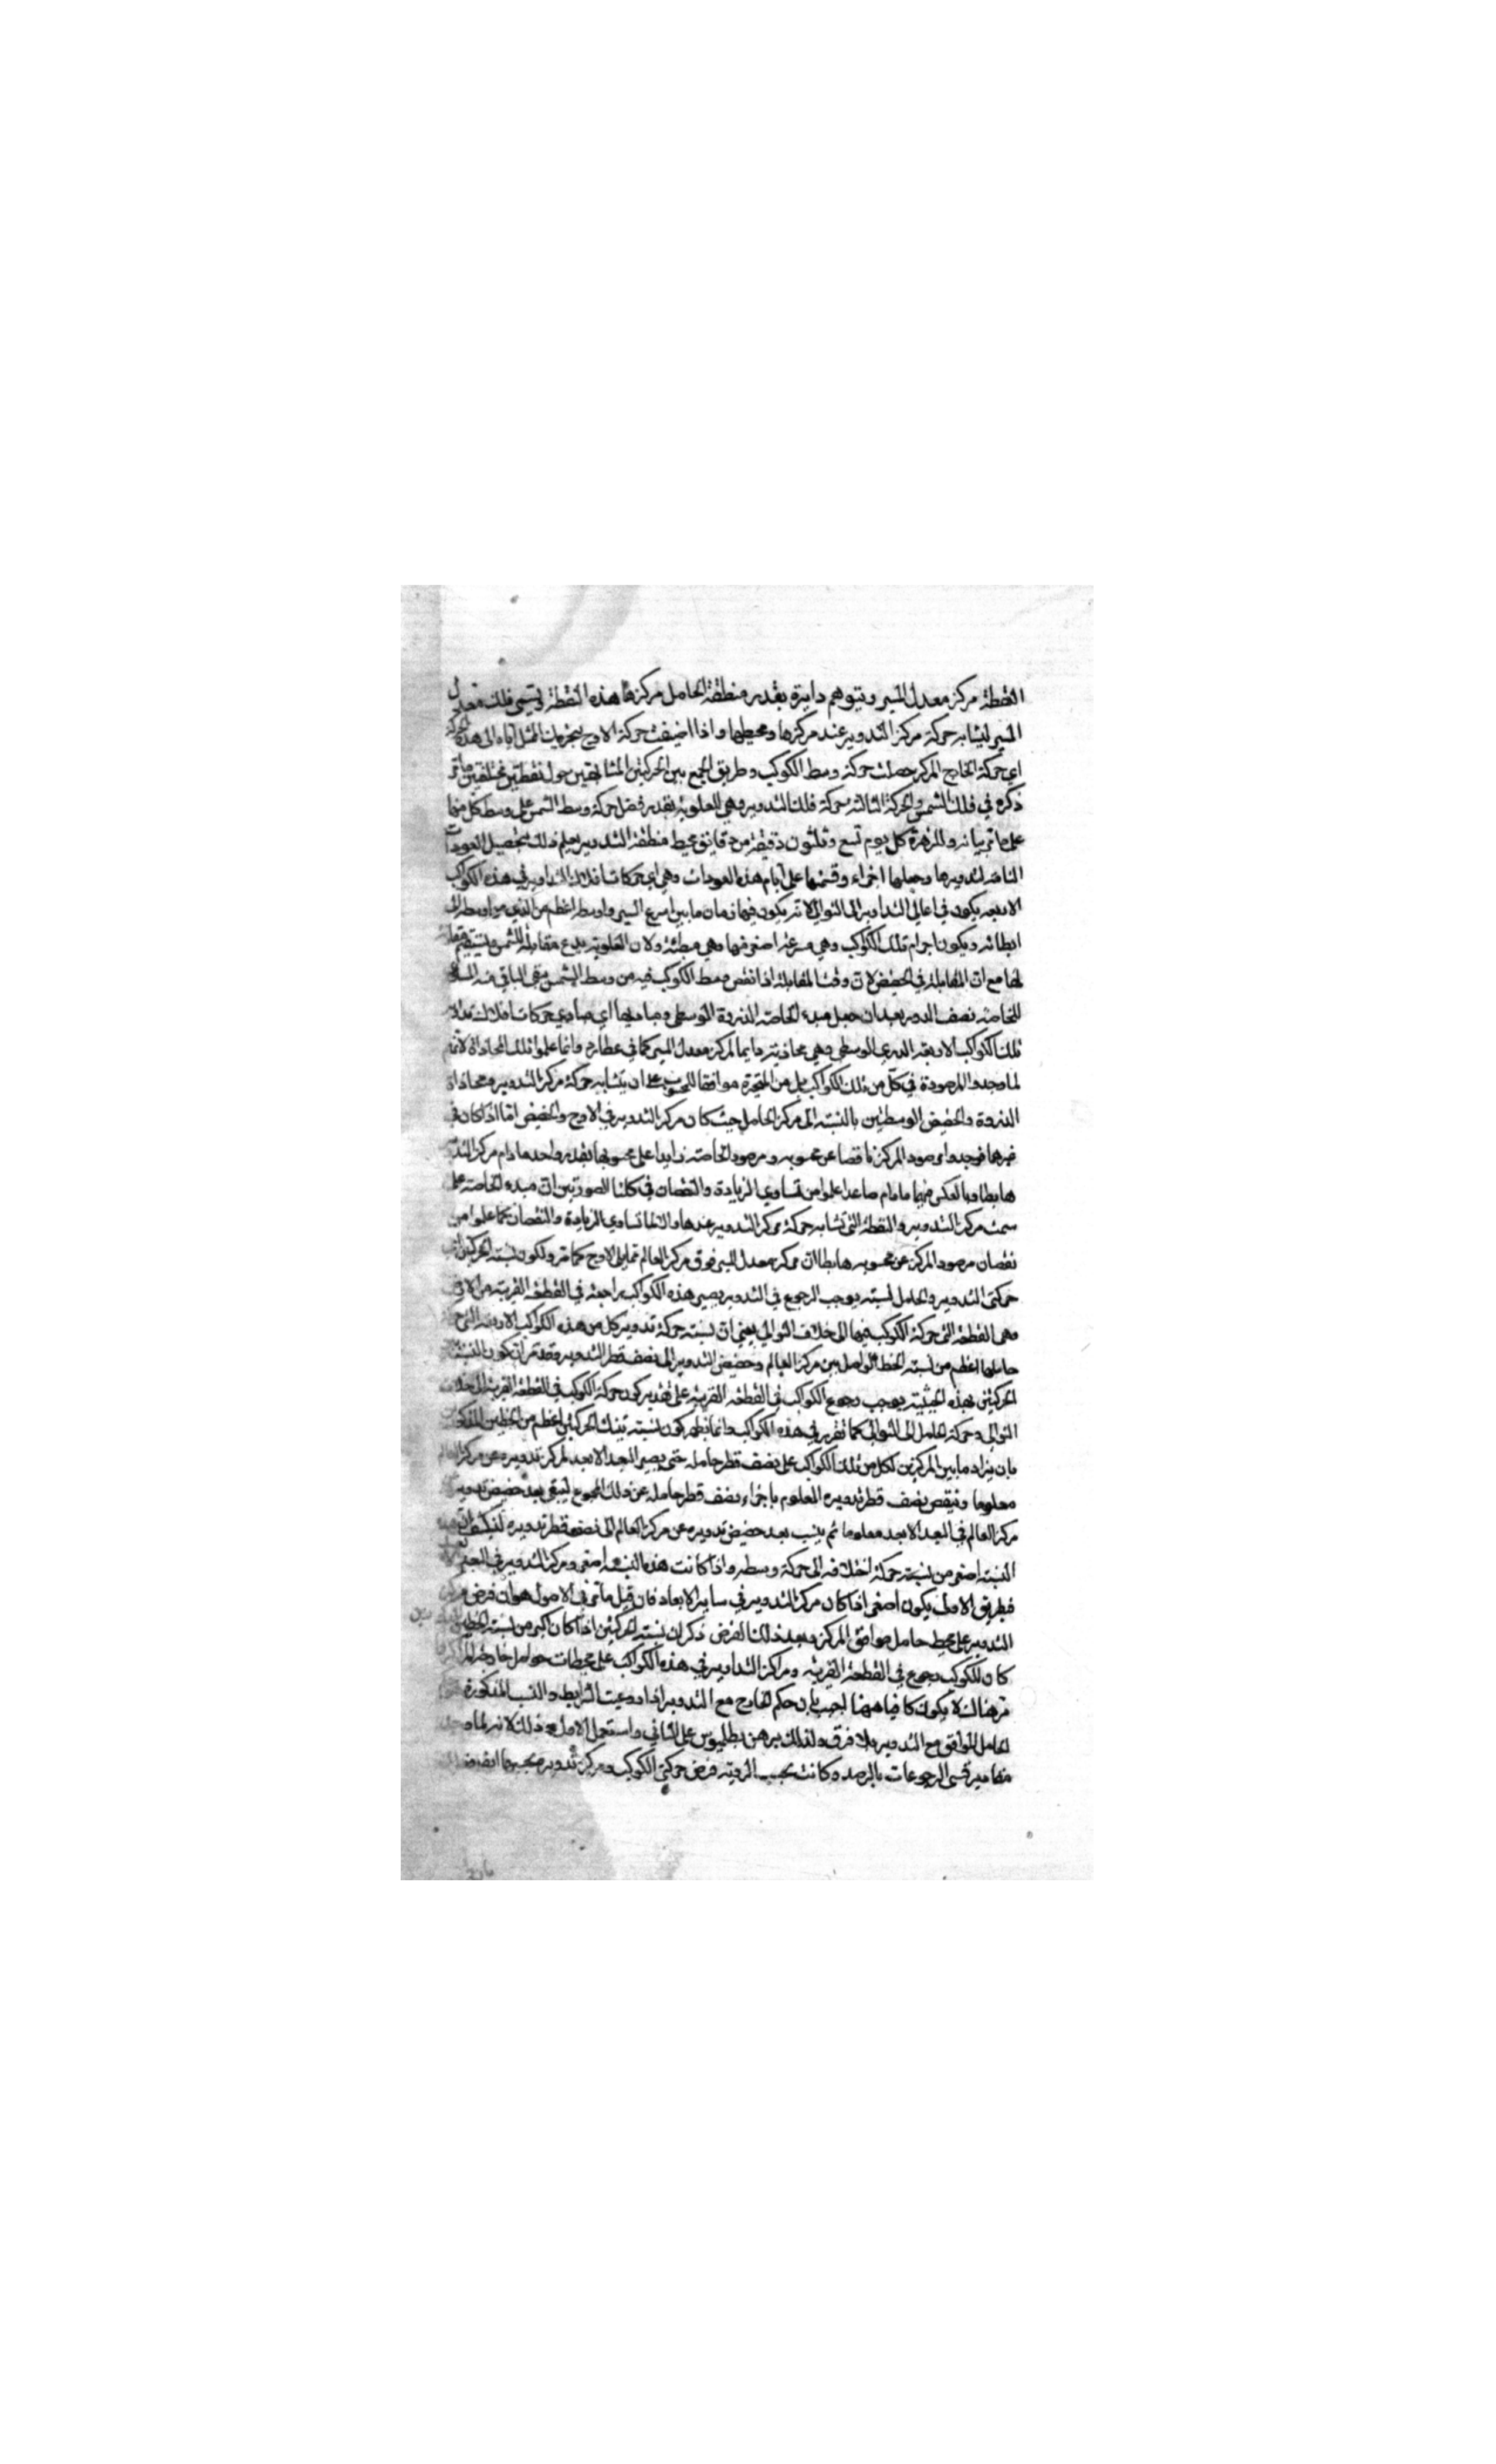 النقطة مركز معدل المسير ويتوهم دايرة بقدر منطقة الحامل مركزها هذه النقطة ويسمى فلك معدل
المسير ليشابه حركة مركز التدوير عند مركزها ومحيطها واذا اضيفت حركة الاوج بتحريك الممثل اياه الى هذه الحركة
اي حركة الخارج المركز حصلت حركة وسط الكوكب وطريق الجمع بين الحركتين المتشابهتين حول نقطتين مختلفتين ما مر
ذكره في فلك الشمس والحركة الثالثة حركة فلك التدوير وهي للعلوية بقدر فضل حركة وسط الشمس على وسط كل منها
على ما مر بيانه وللزهرة كل يوم تسع وثلثون دقيقة من دقايق محيط منطقة التدوير يعلم ذلك بتحصيل العودات
التامة لتدويرها وجعلها اجزاء وقسمتها على ايام هذه العودات وهي اي حركات افلاك التداوير في هذه الكواكب
الاربعة يكون في اعالي التداوير الى التوالي لانه يكون فيها زمان ما بين اسرع السير واوسطه اعظم من الذي من اوسطه الى
ابطائه ويكون اجرام تلك الكواكب وهي مسرعة اصغر منها وهي مبطئة ولان العلوية يرجع مقابلة للشمس ويستقيم مقارنة
لها مع ان المقابلة في الحضيض لان وقت المقابلة اذا نقص وسط الكوكب فيه من وسط الشمس بقي الباقي منه
للخاصة نصف الدور بعد ان جعل مبدء الخاصة الذروة الوسطى ومباديها اي مبادي حركات افلاك تداوير
تلك الكواكب الاربعة الذري الوسطى وهي محاذية دايما لمركز معدل المسير كما في عطارد وانما علموا تلك المحاذاة لانهم
لما وجدوا المرصودة في كل من تلك الكواكب بل من المتحيرة موافقا للمحسوب على ان يتشابه حركة مركز التدوير ومحاذاة
الذروة والحضيض الوسطين بالنسبة الى مركز الحامل حيث كان مركز التدوير في الاوج والحضيض اما اذا كان في
غيرهما فوجدوا مرصود المركز ناقصا عن محسوبه ومرصود الخاصة زايدا على محسوبها بقدر واحد ما دام مركز التدوير
هابطا وبالعكس منهما ما دام صاعدا علموا من تساوي الزيادة والنقصان في كلتا الصورتين ان مبدء الخاصة على
سمت مركز التدوير والنقطة التي تشابه حركة مركز التدوير عندها والا لما تساوي الزيادة والنقصان كما علموا من
نقصان مرصود المركز عن محسوبه هابطا ان مركز معدل المسير فوق مركز العالم مما يلي الاوج كما مر ولكون نسبة الحركتين اي
حركتي التدوير والحامل نسبة يوجب الرجوع في التدوير يصير هذه الكواكب راجعة في القطعة القريبة من الارض
وهي القطعة التي حركة الكوكب فيها الى خلاف التوالي يعني ان نسبة حركة تدوير كل من هذه الكواكب الاربعة الى حركة
حاملها اعظم من نسبة الخط الواصل بين مركز العالم وحضيض التدوير الى نصف قطر التدوير وقد مر ان كون النسبة
الحركتين بهذه الحيثية يوجب رجوع الكواكب في القطعة القريبة على تقدير كون حركة الكوكب في القطعة القريبة الى خلاف
التوالي وحركة الحامل الى التوالي كما تقرر في هذه الكواكب وانما يظهر كون نسبة تينك الحركتين اعظم من الخطين المذكورين
بان يزاد ما بين المركزين لكل من تلك الكواكب على نصف قطر حامله حتى يصير البعد الابعد لمركز تدويره عن مركز العالم
معلوما وينقص نصف قطر تدويره المعلوم باجزاء نصف قطر حامله عن ذلك المجموع ليبقى بعد حضيض تدويره
مركز العالم في البعد الابعد معلوما ثم ينسب بعد حضيض تدويره عن مركز العالم الى نصف قطر تدويره لينكشف ان هذه
النسبة اصغر من نسبة حركة اختلافه الى حركة وسطه واذا كانت هذه النسبة اصغر ومركز التدوير في البعد
فبطريق الاولى يكون اصغر اذا كان مركز التدوير في ساير الابعاد فان قيل ما مر في الاصول هو ان فرض مركز
التدوير على محيط حامل موافق المركز وبعد ذلك الفرض ذكر ان نسبة الحركتين اذا كان اكبر من نسبة الخطين
كان للكوكب رجوع في القطعة القريبة ومراكز التداوير في هذه الكواكب على محيطات حوامل خارجة المراكز فما
مر هنالك لا يكون كافيا ههنا اجيب بان حكم الخارج مع التدوير اذا روعيت الشرايط والنسب المذكورة
الحامل الموافق مع التدوير بلا فرق ولذلك برهن بطلميوس على الثاني واستعمل الاول وذلك لانه لما وجد
مقادير قسي الرجوعات بالرصد وكانت بحسب الرؤية فرض حركتي الكوكب ومركز تدويره بحسبها ايضا